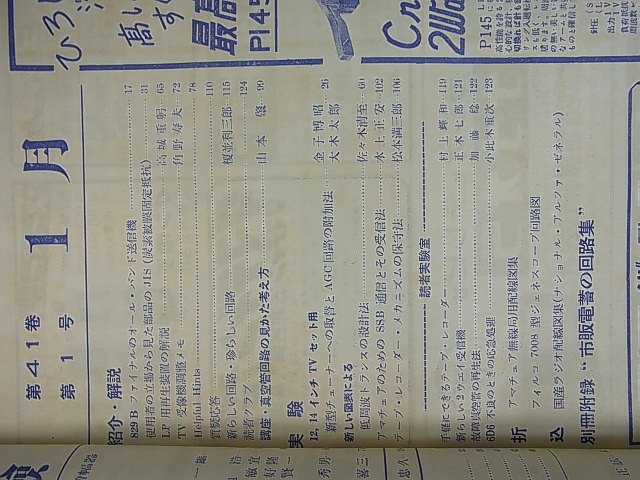 第41巻
第1号
1月
紹介・解説
829Bファイナルのオール・バンド送信機 17
使用者の立場から見た部品のJIS(炭素被膜固定抵抗) 31
LP用再生装置の解説 高城重躬 65
TV受像機調整メモ 角野寿夫 72
Helpful Hints 78
質疑応答 110
新らしい回路・珍らしい回路 榎並利三郎 115
読者クラブ 124
講座・真空管回路の見かた考え方 山本肇 99
実験
12, 14インチTVセット用
新型チューナーへの取替とAGC回路の附加法 金子博昭 26
大木太郎
新しい図表による
低周波トランスの設計法 佐々木清至 60
アマチュアのためのSSB通信とその受信法 水上正安 102
テープ・レコーダー・メカニズムの保守法 松本満三郎 106
読者実験室
手軽にできるテープ・レコーダー 村上輝和 119
新らしい2ウエイ受信機 正木七郎 121
故障真空管の再生法 加藤稔 122
6D6不良のときの応急処理 小此木重次 123
折込
アマチュア無線局用配線図集
フィルコ7008型ジェネスコープ回路図
国産ラジオ配線図集(ナショナル・アルファ・ゼネラル)
別冊附録“市販電蓄の回路集”
ひろし
高い
最高
P145
Cn
2Wa
P145